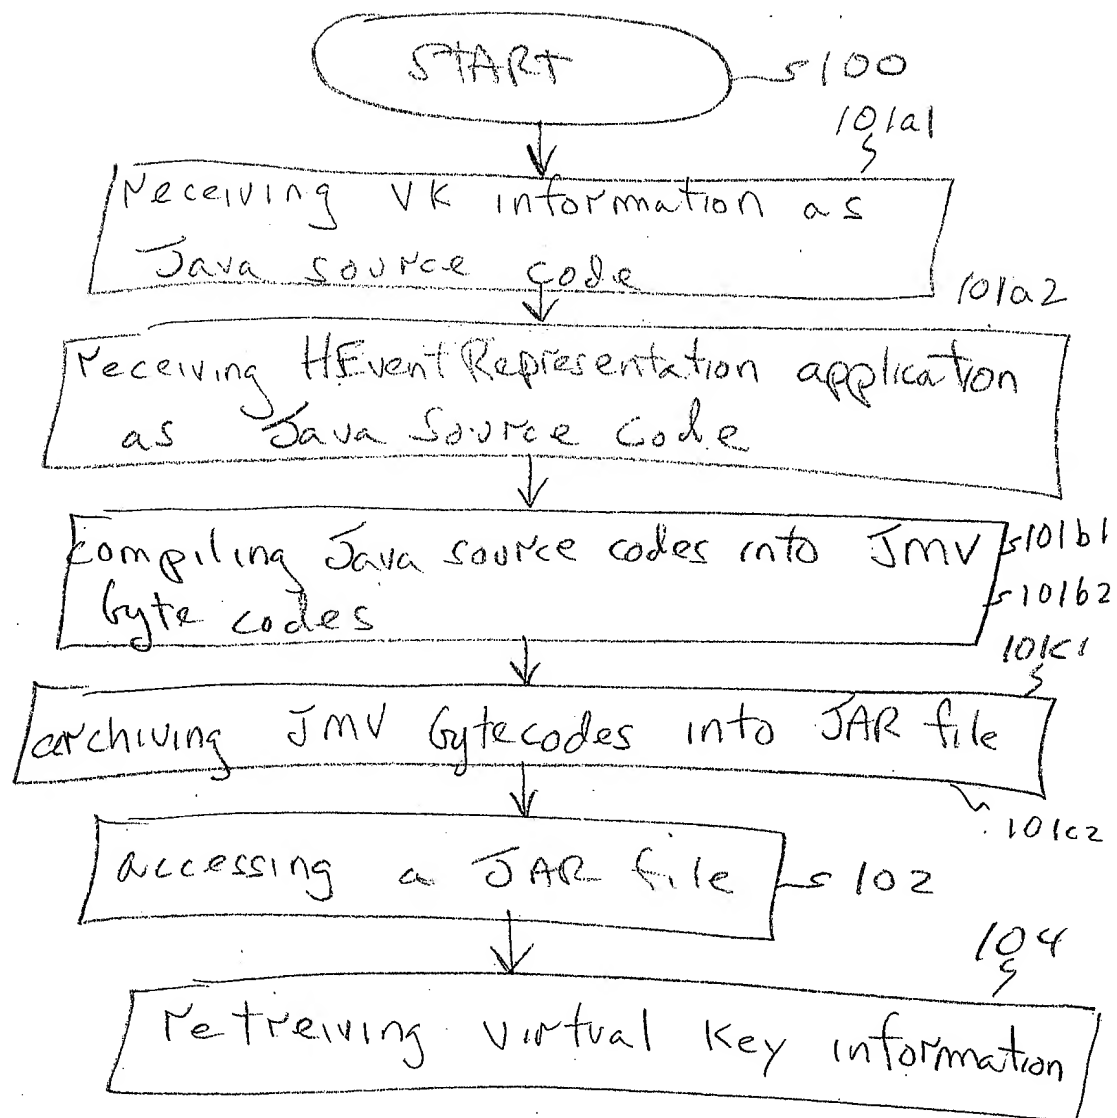 START
100
101a1
receiving VK information as
Java source code
101a2
receiving HEventRepresentation application
as Java Source Code
compiling Java source codes into JMV
byte codes
101b1
101b2
101c1
archiving JMV bytecodes into JAR file
101c2
accessing a JAR file
102
104
retreiving virtual key information